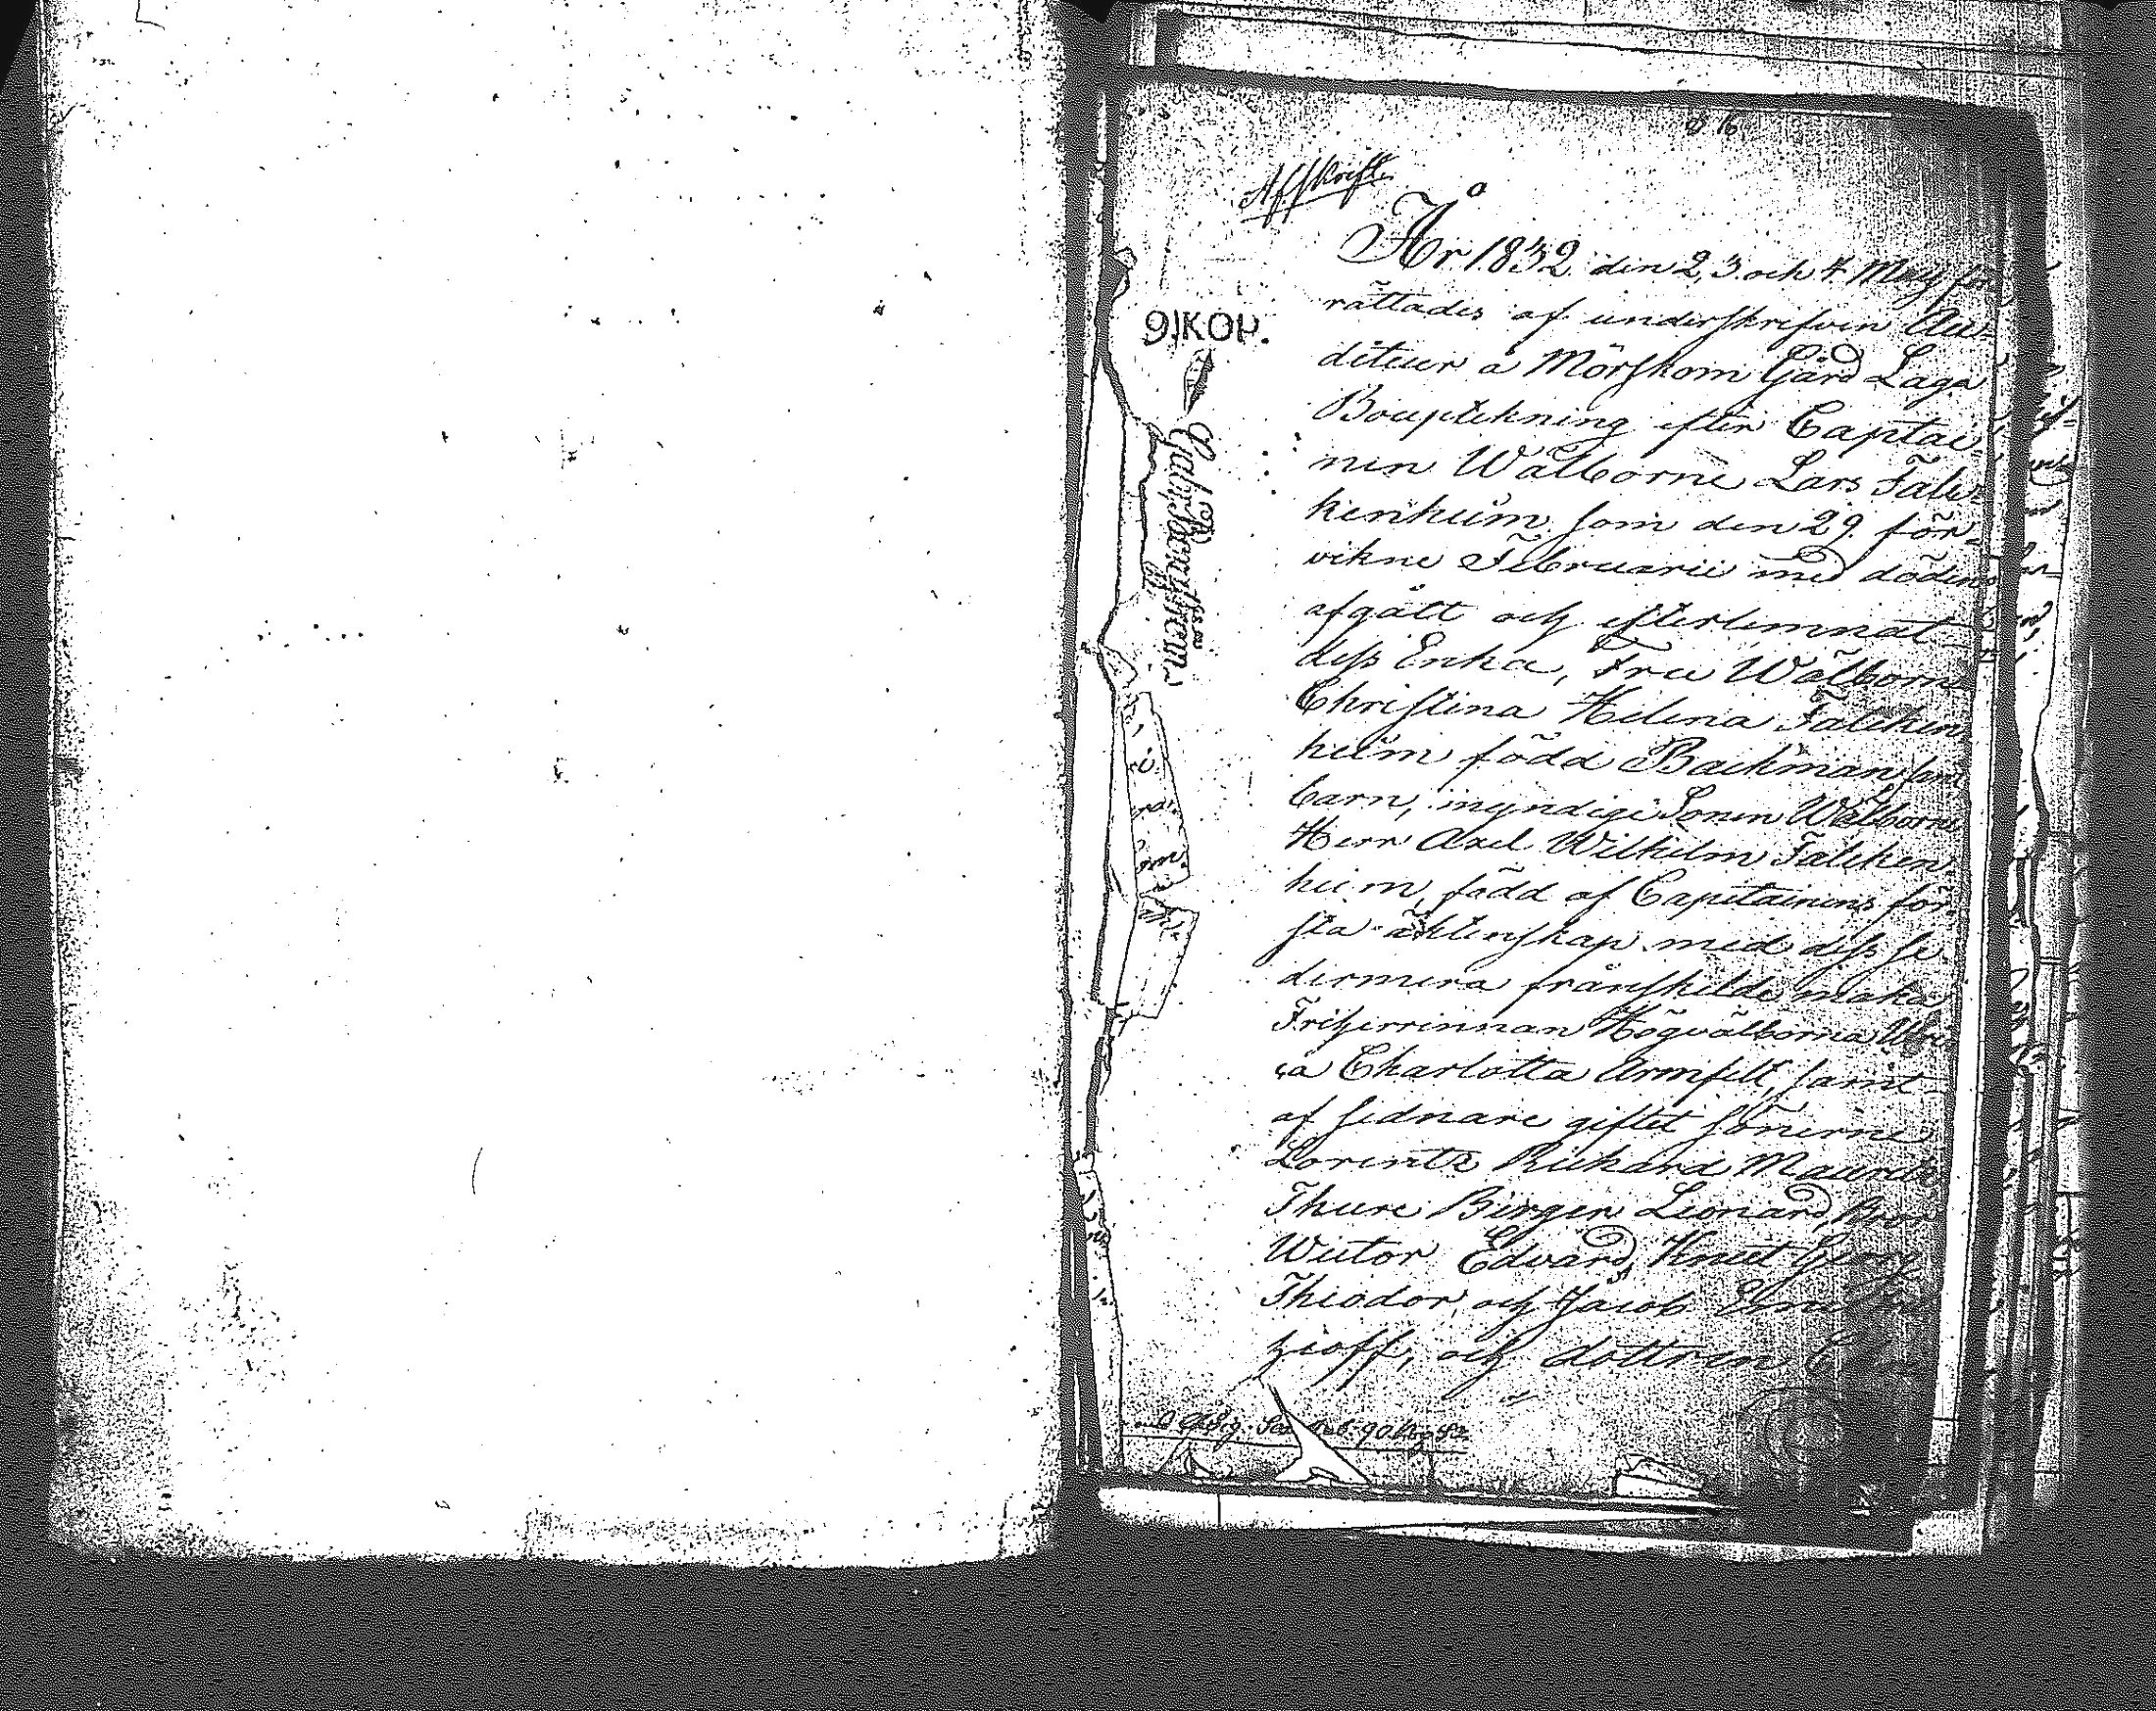 Afskrift
År 1832 den 2, 3. och 4 May för
rättades af underskrefven Au-
diteur å Mörskom Gård Laga
Bouptekning efter Captai-
nen Wälborne Lars Falc-
kenheim som den 29. för-
vikne Februarii med döden
afgått och efterlemnat
dess Enka, Fru Wälborna
Christina Helena Falcken
heim född Backman samt
barn, myndige Sonen Wälborne
Herr Axel Wilhelm Falcken
heim, född af Capitainens för
sta äktenskap med dess se-
dermera frånskilde maka
Friherrinnan Högvälborna Ulri
ca Charlotta Armfelt, samt
af sednare giftet Sönerne
Lorentz Rickard Maurits
Thure Birger Leonard, Bror
Wictor Edvard, Knut Georg
Theodor, och Jacob
och dottren
9 KOP.